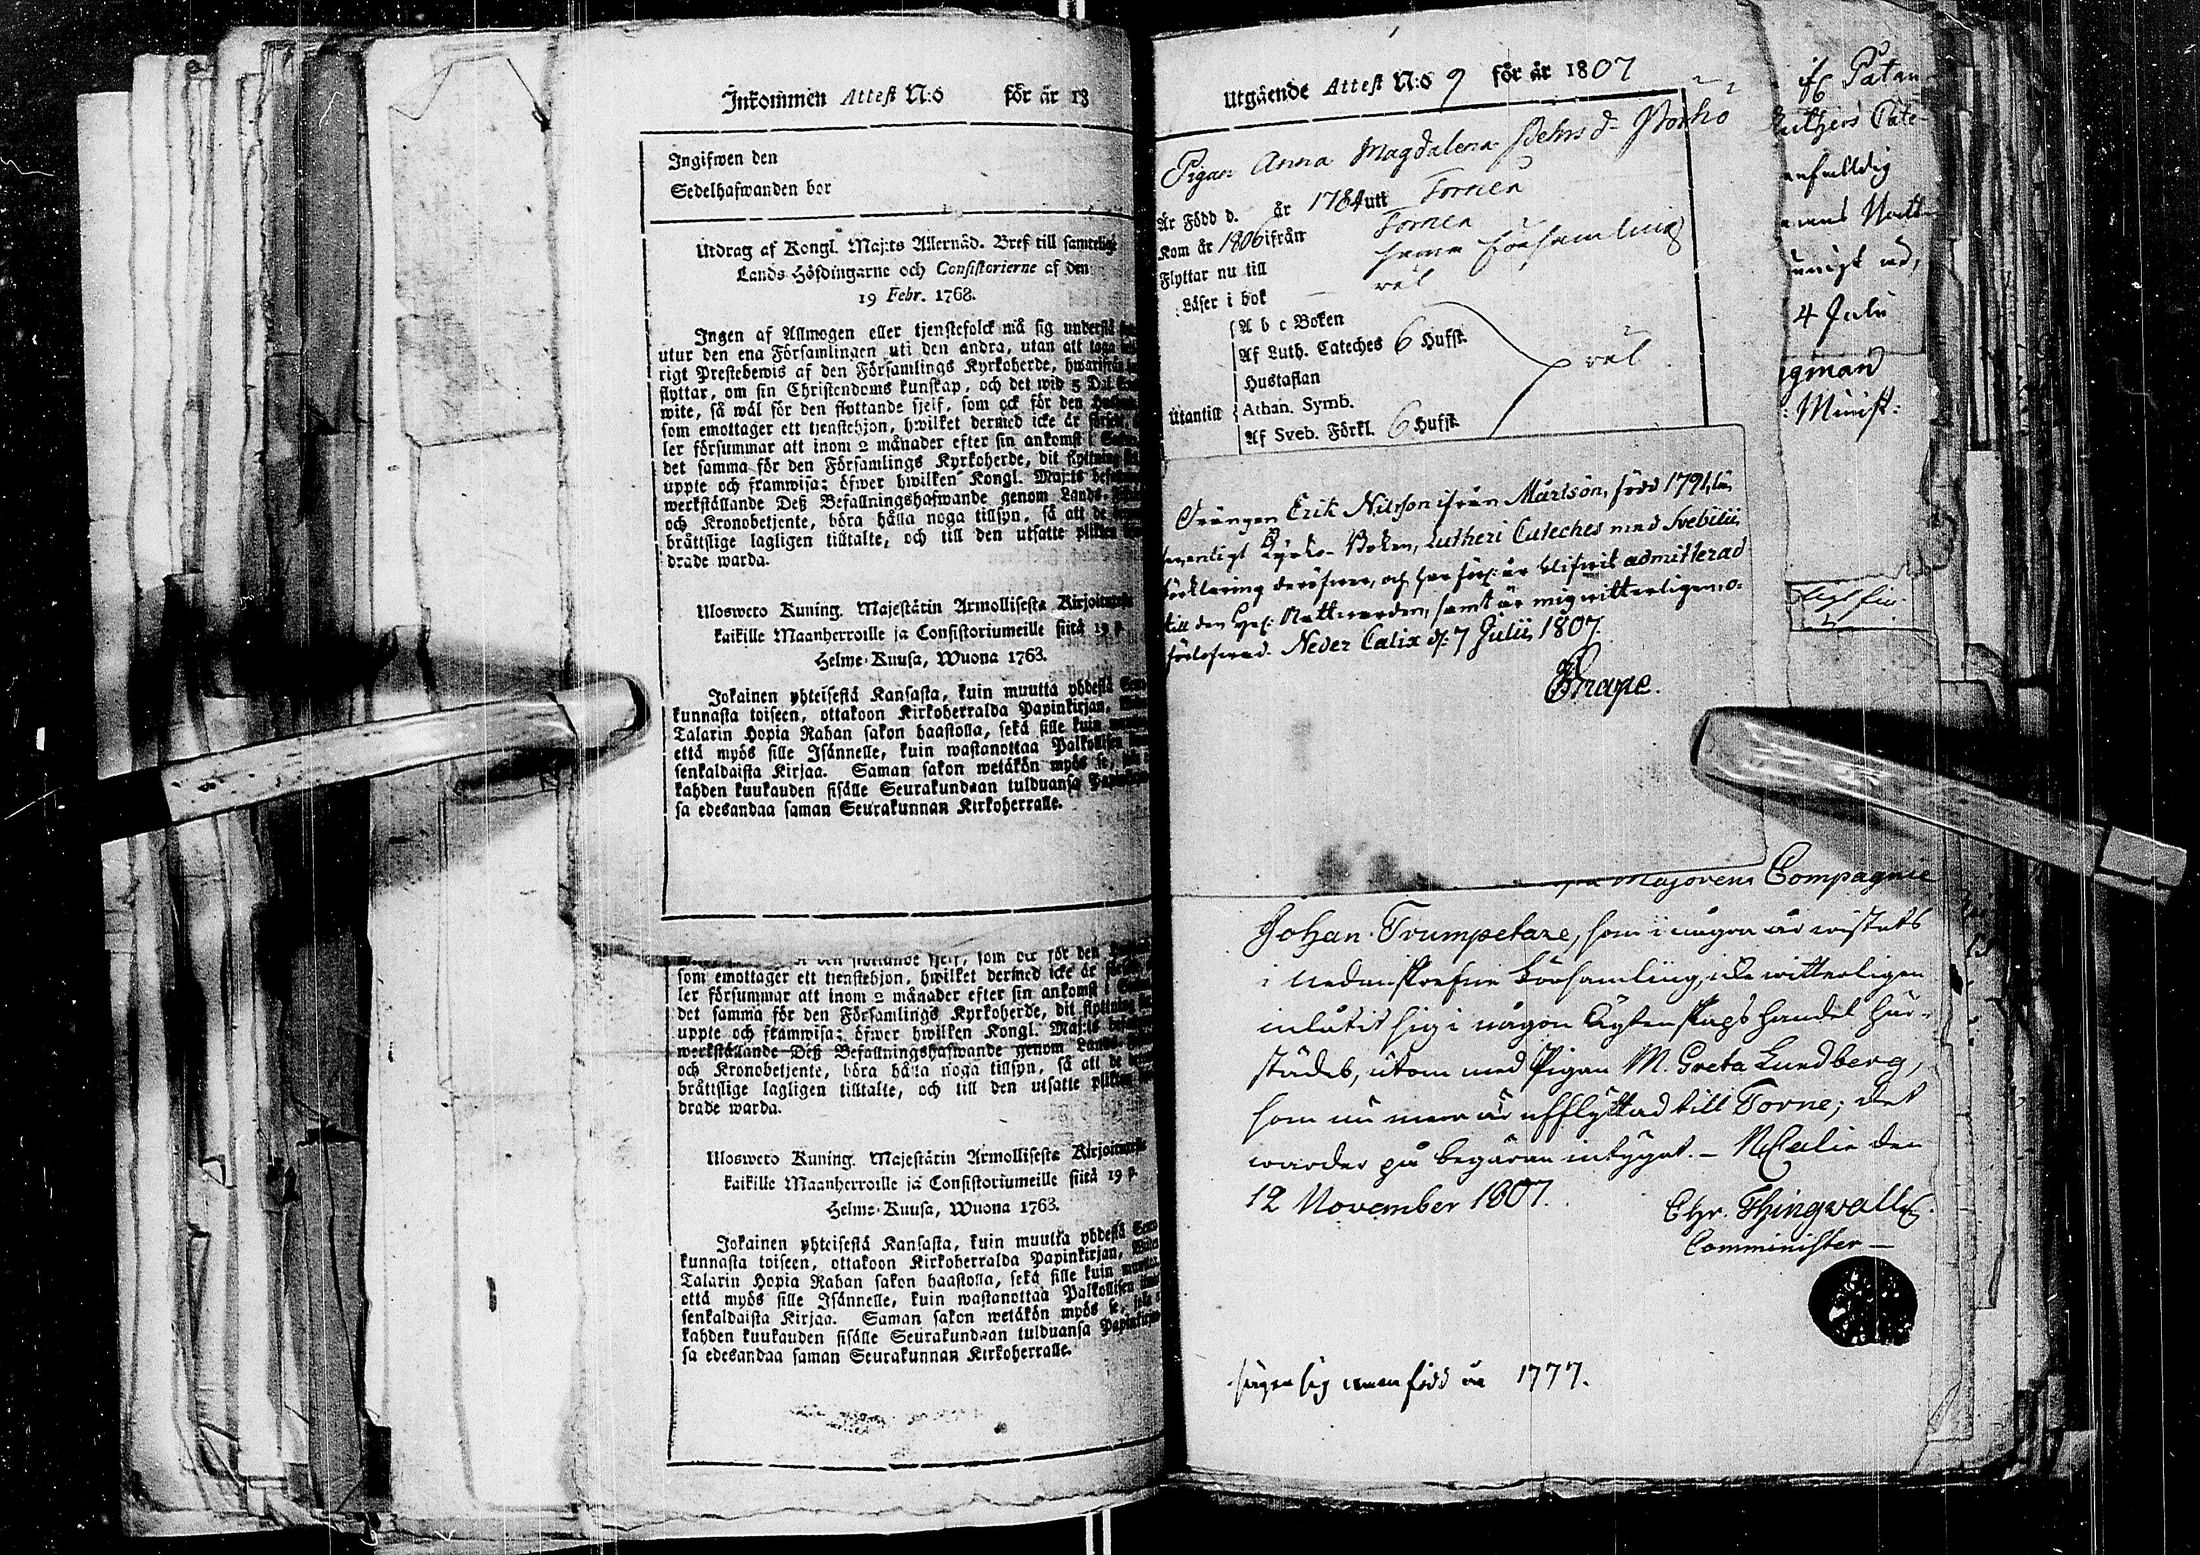 Inkommen Attest N:o för år 18
Ingifwen den
Sedelhafwanden bor
Utdrag af Kongl. Maj:ts Allernåd. Bref till samtelige
Lands-Höfdingarne och Consistorierne af den
19 Febr. 1763.
Ingen af Allmogen eller tjenstefolck må sig understå
utur den ena Församlingen uti den andra, utan att taga
rigt Prestebewis af den Församlings Kyrkoherde, hwarifrån
flyttar, om sin Christendoms kunskap, och det wid 5 Dal.
wite, så wäl för den flyttande sjelf, som ock för den
som emottager ett tjenstehjon, hwilket dermed icke är försedt,
ler försummar att inom 2 månader efter sin ankomst i
det samma för den Församlings Kyrkoherde, dit flyttning
uppte och framwisa; öfwer hwilken Kongl. Maj:ts
werkställande Deß Befallningshafwande genom Lands-
och Kronobetjente, böra hålla noga tillsyn, så att de
brättslige lagligen tilltalte, och till den utsatte plikten
drade warda.
Uloswcto Kuning. Majestätin Armollisesta Kirjoituresta
kaikille Maanherroille ja Consistoriumeille siitä 19 p.
Helme-Kuusa, Wuona 1763.
Jokainen yhteisestä Kansasta, kuin muutta yhdestä Seura-
kunnasta toiseen, ottakoon Kirkoherralda Papinkirjan,
Talarin Hopia Rahan sakon haastolla, sekä sille kuin
että myös sille Isännelle, kuin wastanottaa Palkollisen
senkaldaista Kirjaa. Saman sakon wetäkön myös se,
kahden kuukauden sisälle Seurakundaan tulduansa
sa edesandaa saman Seurakunnan Kirkoherralle.
som emottager ett tjenstehjon, hwilket dermed icke är
ler försummar att inom 2 månader efter sin ankomst i
det samma för den Församlings Kyrkoherde, dit flyttning
uppte och framwisa; öfwer hwilken Kongl. Maj:ts
werkställande Deß Befallningshafwande genom Lands-
och Kronobetjente, böra hålla noga tillsyn, så att de
brättslige lagligen tilltalte, och till den utsatte plikten
drade warda.
Uloswcto Kuning. Majestätin Armollisesta Kirjoituresta
kaikille Maanherroille ja Consistoriumeille siitä 19 p.
Helme-Kuusa, Wuona 1763.
Jokainen yhteisestä Kansasta, kuin muutta yhdestä Seura-
kunnasta toiseen, ottakoon Kirkoherralda Papinkirjan,
Talarin Hopia Rahan sakon haastolla, sekä sille kuin
että myös sille Isännelle, kuin wastanottaa Palkollisen
senkaldaista Kirjaa. Saman sakon wetäkön myös se,
kahden kuukauden sisälle Seurakundaan tulduansa Papinkirjan
sa edesandaa saman Seurakunnan Kirkoherralle.
Utgående Attest N:o 9 för år 1807
Pigan Anna Magdalena Pehrsd=
Är Född d. år 1784 utt Torneå
Kom år 1806 ifrån Torneå
Flyttar nu till samma Församling
Läser i bok väl
A b c Boken
Af Luth. Cateches 6 Hufst.
Hustaflan väl
Utantill Athan. Symb.
Af Sveb. Förkl. 6 Hufst.
Drängen Erik Nilsson ifrån Mårtsön, född 1791, lä-
ser enligt Kyrko-Boken, Lutheri Cateches med Svebilii
förklaring deröfwer, och har förl. år blifwit admitterad
till den Hel. Nattwarden, samt är mig witterligen o-
förlofwad. Neder Calix d: 7 Julii 1807.
Brape.
Majorens Compagnie
Johan Trumpetare, som i några år wistats
i nedanskrefne Församling, icke witterligen
inlåtit sig i någon Ägtenskaps handel här-
städes, utom med Pigan M. Greta Lundberg,
som nu mera är afflyttad till Torne; det
warder på begäran intygat. – NCalix den
12 November 1807.
Chr. Thingvall
Comminister –
säger sig wara född år 1777.
4 Julii
gman
: Minist: